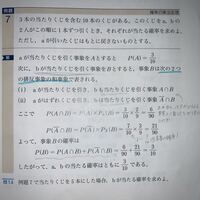 例題
7
確率の乗法定理
3本の当たりくじを含む10本のくじがある。このくじを a, b の
2人がこの順に1本ずつ引くとき,それぞれが当たる確率を求めよ。
ただし,aが引いたくじはもとに戻さないものとする。
解 aが当たりくじを引く事象をAとすると P(A) = 3/10
次に,bが当たりくじを引く事象をBとすると,事象Bは次の2つ
の排反事象の和事象で表される。
(i) aが当たりくじを引き,bも当たりくじを引く A∩B
(ii) aははずれくじを引き,bが当たりくじを引く A̅∩B
ここで P(A∩B) = P(A)·P_A(B) = 3/10 · 2/9 = 6/90
P(A̅∩B) = P(A̅)·P_A̅(B) = 7/10 · 3/9 = 21/90
よって,事象Bの確率は
P(B) = P(A∩B) + P(A̅∩B) = 6/90 + 21/90 = 3/10
したがって,a, bの当たる確率はともに 3/10 である。
問14 例題7で当たりくじを5本にした場合,bが当たる確率を求めよ。